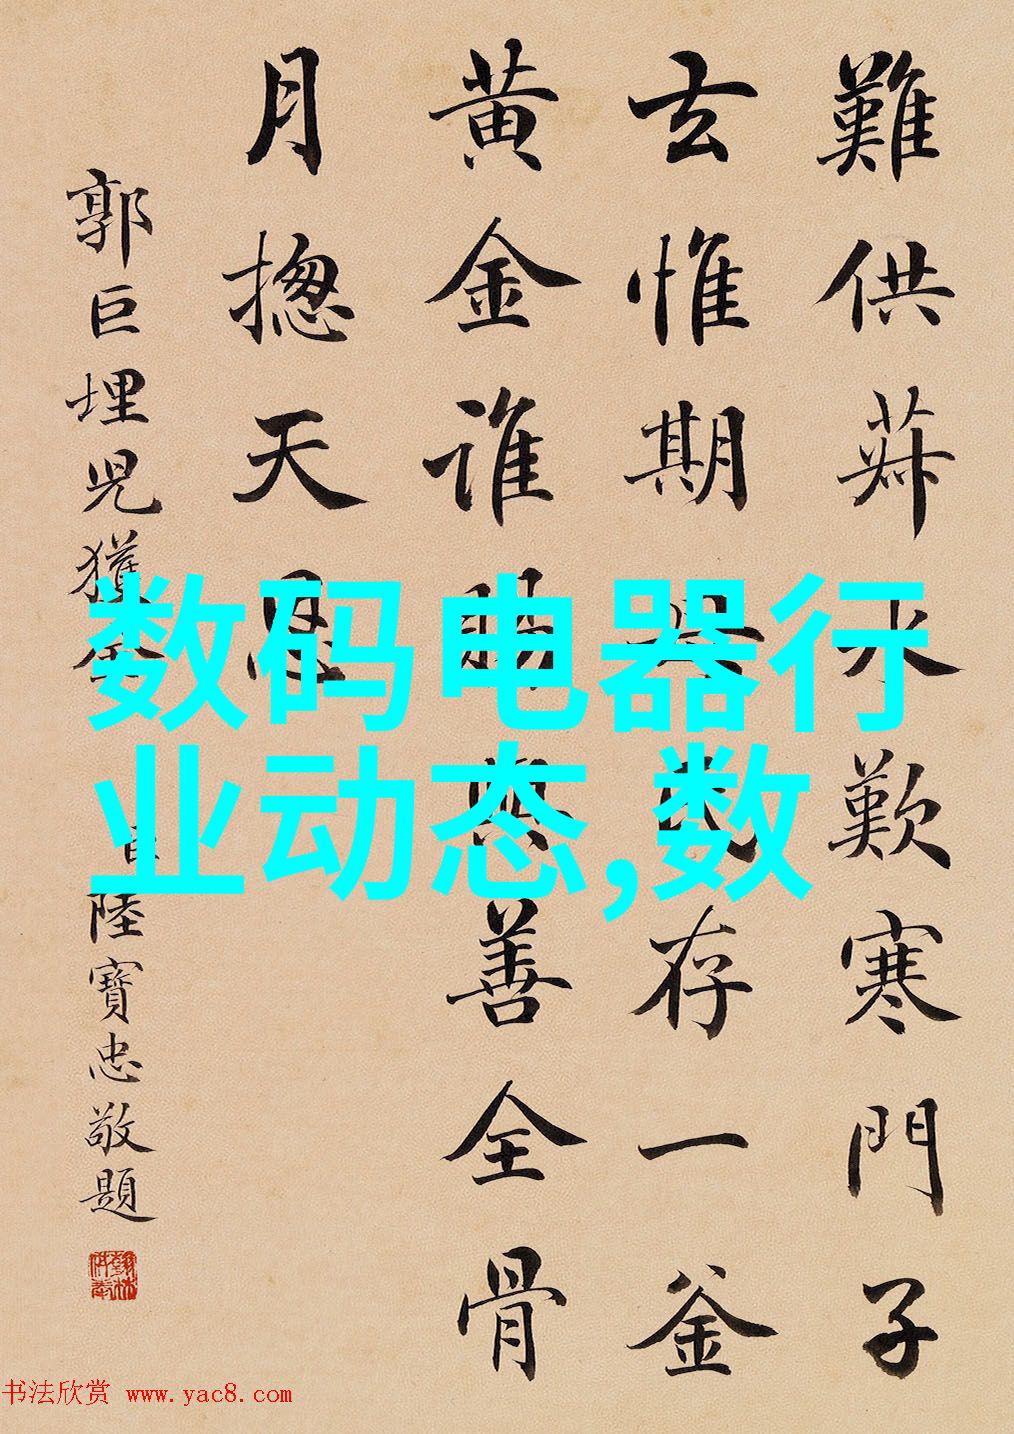 難供菽水歎寒門子
玄惟期存一釜
黄金谁賜與善全骨
月揔天恩
郭巨埋児獲金
臣陸寶忠敬題
数码电器行
业动态,数
书法欣赏 www.yac8.com